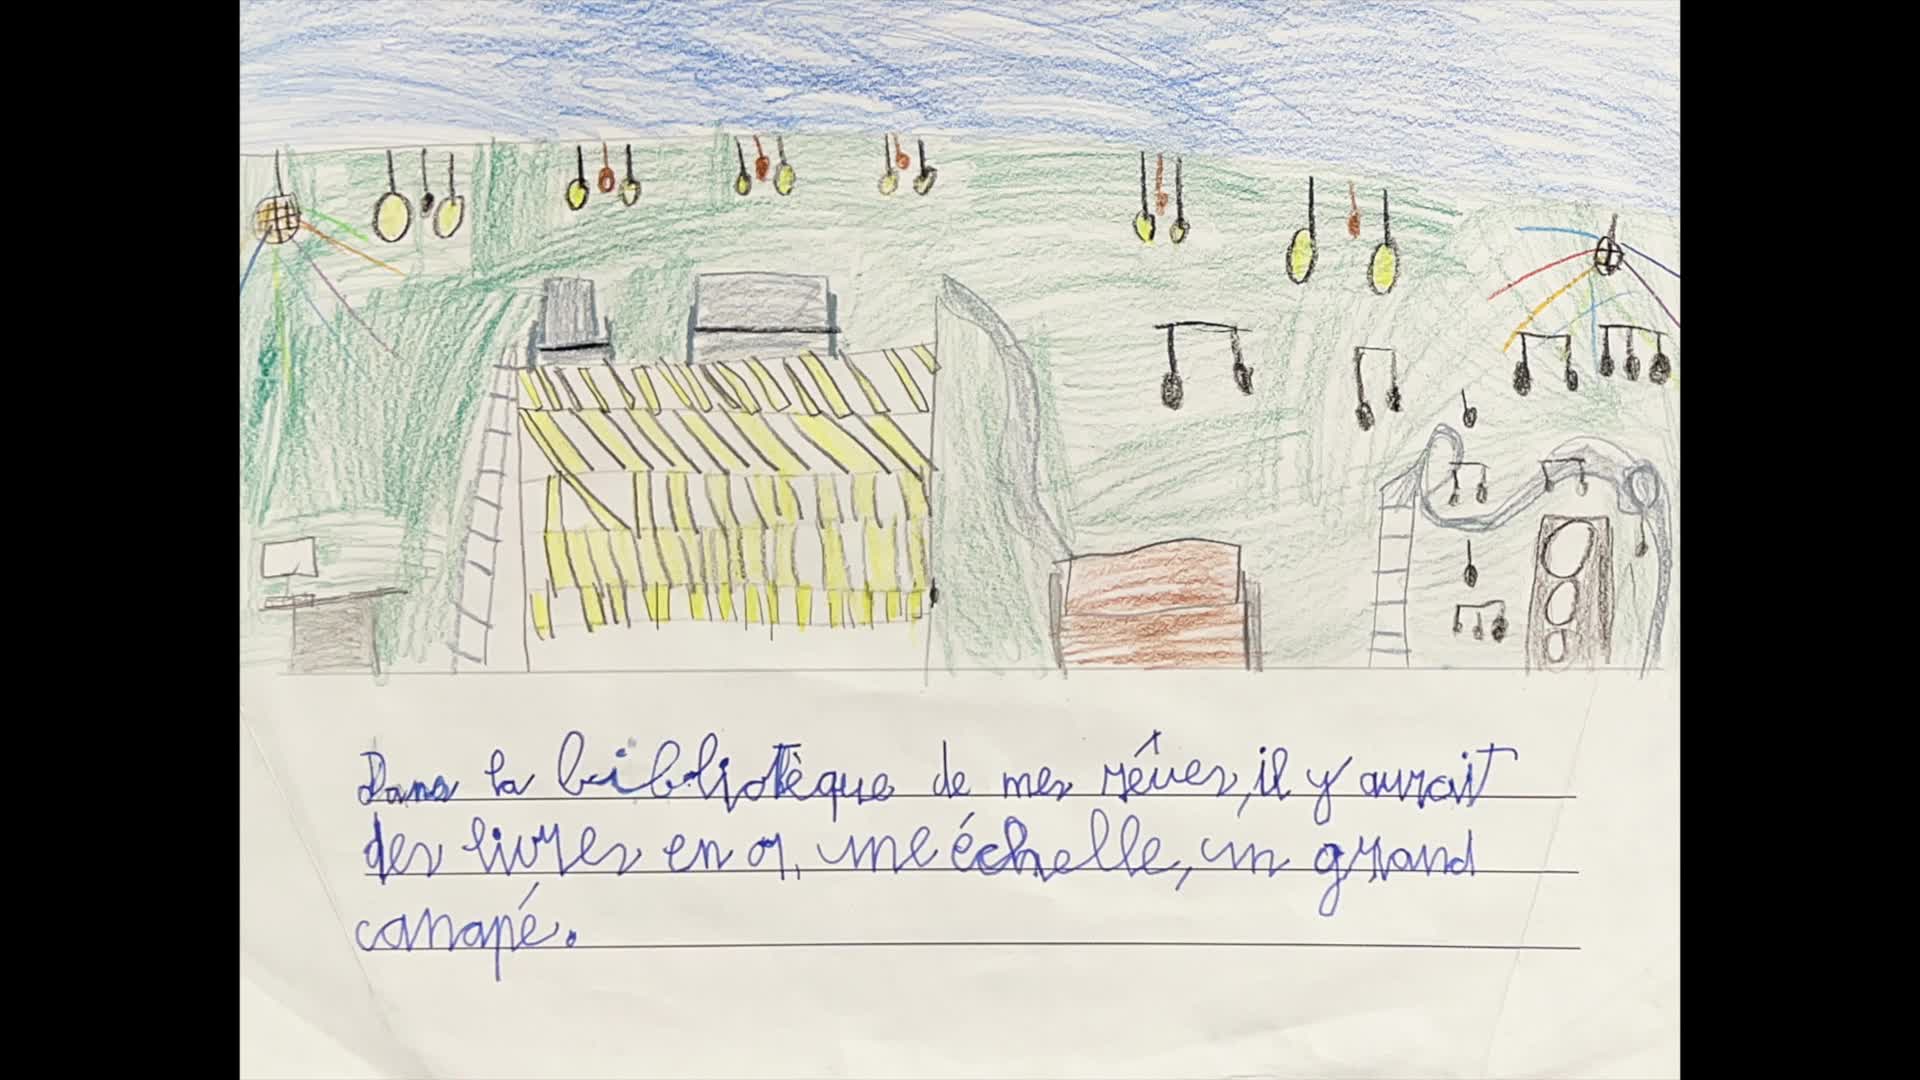 Dans la bibliotèque de mes rêves, il y aurait
des livres en or, une échelle, un grand
canapé.